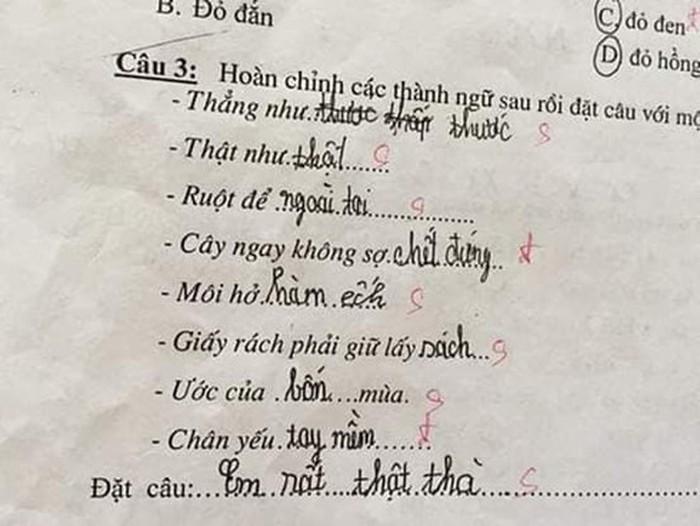 B. Đỏ đắn
C đỏ đen
D đỏ hồng
Câu 3: Hoàn chỉnh các thành ngữ sau rồi đặt câu với
- Thẳng như thước thấp thước s
- Thật như.thật....... s
- Ruột để .ngoài.tai.............. s
- Cây ngay không sợ.chết.đứng.. đ
- Môi hở.hàm.ếch s
- Giấy rách phải giữ lấy sách... s
- Ước của .bốn....mùa. s
- Chân yếu.tay mềm....... đ
Đặt câu:...Em..rất....thật.thà.....s